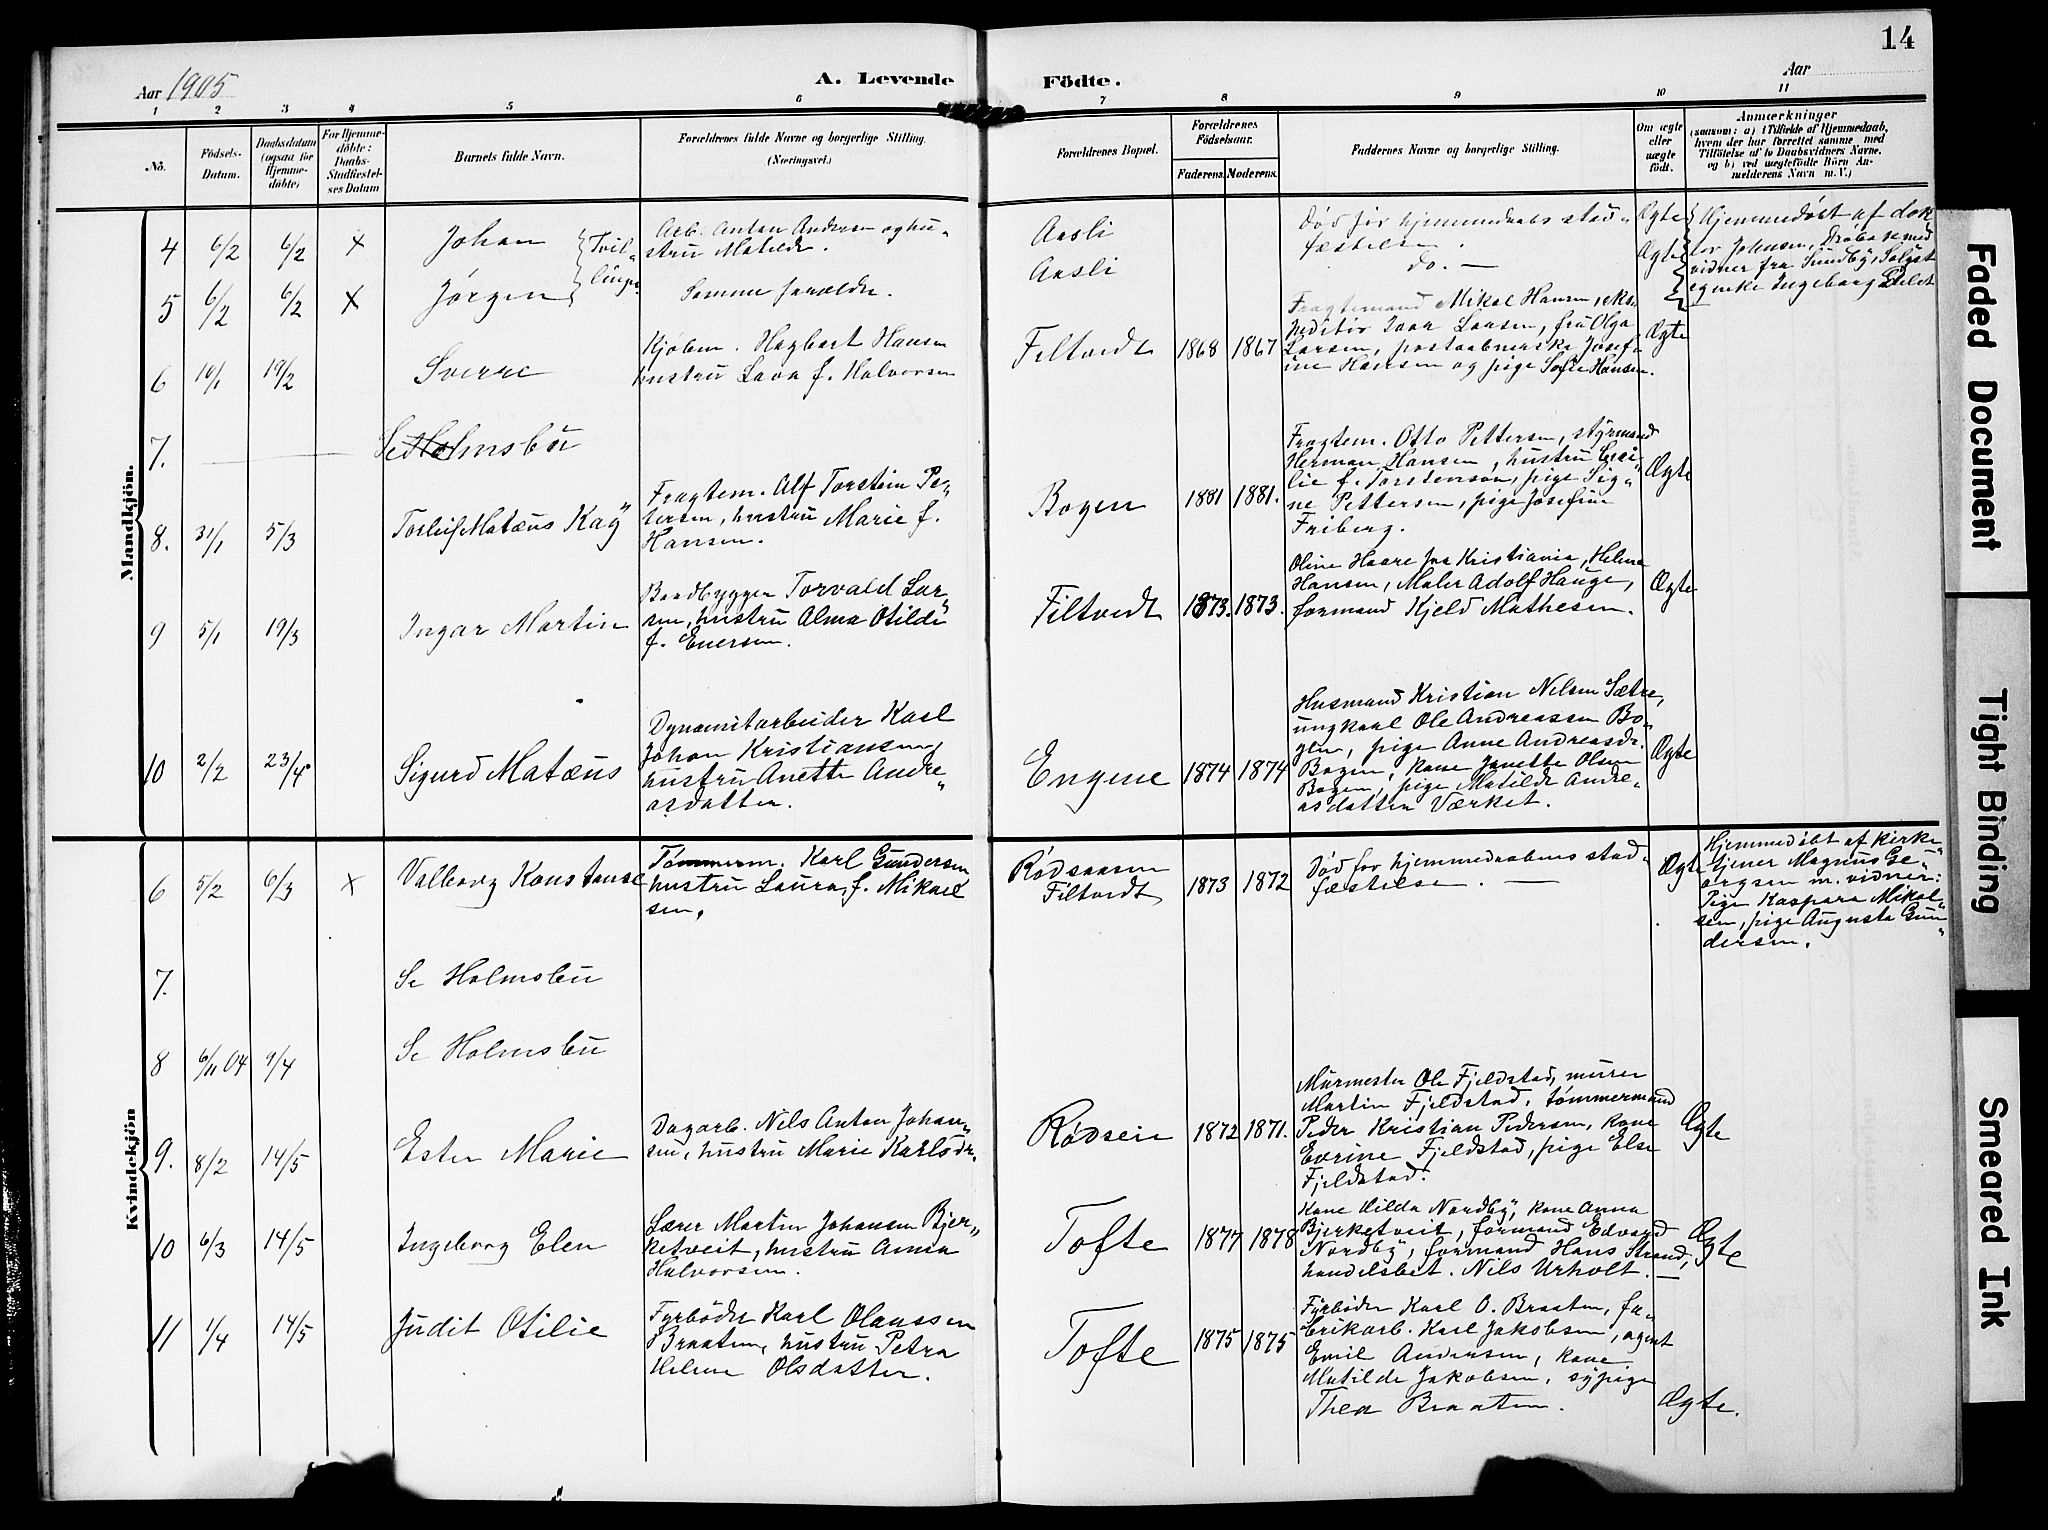 14
Aar 1905
A. Levende
Födte.
Aar
1 2 3 4 5 6 7 8 9 10 11
No.
Födsels-
Datum.
Daabsdatum
(ogsaa for
Hjemme-
döbte)
For Hjemme-
döbte:
Daabs-
Stadfæstel-
ses Datum
Barnets fulde Navn.
Forældrenes fulde Navne og borgerlige Stilling.
(Næringsvei.)
Forældrenes Bopæl.
Forældrenes
Födselsaar.
Faderens. Moderens.
Faddernes Navne og borgerlige Stilling.
Om ægte
eller
uægte
født.
Anmærkninger
(saasom: a) i Tilfælde af Hjemmedaab,
hvem der har forrettet samme, med
Tilföielse af to Daabsvidners Navne,
og b) ved uægtefödte Börn An-
melderens Navn m. V.)
Mandkjön.
4 6/2 6/2 x Johan Tvil-
linger
Arb. Anton Andersen og hu-
stru Matilde.
Aasli
Død før hjemmedaabs stad-
fæstelse.
Ægte
Hjemmedøbt af dok
tor Johnsen, Drøbak med
vidner fra Sundby,
Ingeborg
5 6/2 6/2 x Jørgen
Samme forældre.
Aasli
do. —
Ægte
6 10/1 19/2 Sverre
Kjøbm. Hagbart Hansen
hustru Lava f. Halvorsen
Filtvedt 1868 1867
Fragtemand Mikal Hansen, eks-
peditør Ivar Larsen, fru Olga
Larsen, postaabnerske Josef-
ine Hansen og pige Sofie Hansen.
Ægte
7. Se Holmsbu
8. 31/1 5/3 Torleif Matæus Kaÿ
Fragtem. Alf Torstein Pe-
tersen, hustru Marie f.
Hansen.
Bogen 1881 1881.
Fragtem. Otto Pettersen, styrmand
Herman Hansen, hustru Ceci-
lie f. Torstenson, pige Sig-
ne Pettersen, pige Josefine
Friberg.
Ægte
9 5/1 19/3 Ingar Martin
Baadbygger Torvald Lar-
sen, hustru Alma Otilde
f. Enersen.
Filtvedt 1873. 1873.
Oline Haare fra Kristiania, Helena
Hansen, Maler Adolf Hauge,
formand Kjeld Mathesen.
Ægte
10 2/2 23/4 Sigurd Matæus
Dynamitarbeider Karl
Johan Kristiansen
hustru Anette Andre-
asdatter.
Engene 1874 1874
Husmand Kristian Nilsen Sætre,
ungkarl Ole Andreassen Bo-
gen, pige Anne Andreasdr.
Bogen, kone Janette Olsen
Bogen, pige Matilde Andre-
asdatter Værket.
Ægte
Kvindekjön
6 5/2 6/3 x Valborg Konstanse
Tømmerm. Karl Gundersen
hustru Laura, f. Mikael
sen.
Rødsaasen
Filtvedt 1873 1872
Død før hjemmedaabens stad-
fæstelse. —
Ægte
Hjemmedøbt af kirke-
tjener Magnus Ge-
orgsen m. vidner:
Pige Kaspara Mikal-
sen, pige Augusta Gun-
dersen.
7. Se Holmsbu
8 6/11 04 9/4 Se Holmsbu
9. 8/2 14/5 Ester Marie
Dagarb. Nils Anton Johan-
sen, hustru Marie Karlsdr.
Rødsein 1872 1871.
Murmester Ole Fjeldstad, murer
Martin Fjeldstad, tømmermand
Peder Kristian Pedersen, kone
Evrine Fjeldstad, pige Else
Fjeldstad.
Ægte
10 6/3 14/5 Ingeborg Elen
Lærer Martin Johansen Bjer-
ketveit, hustru Anna
Halvorsen.
Tofte 1877 1878
Kone Hilda Nordbÿ, kone Anna
Bjerketveit, formand Edvard
Nordbÿ, formand Hans Strand,
handelsbet. Nils Urholt. —
Ægte
11 1/4 14/5 Judit Otilie
Fyrbøder Karl Olaussen
Braaten, hustru Petra
Helene Olsdatter.
Tofte 1875 1875
Fyrbøder Karl O. Braaten, fa-
brikarb. Karl Jakobsen, agent
Emil Andersen, kone
Matilde Jakobsen, sypige
Thea Braaten.
Ægte.
Faded Document
Tight Binding
Smeared Ink